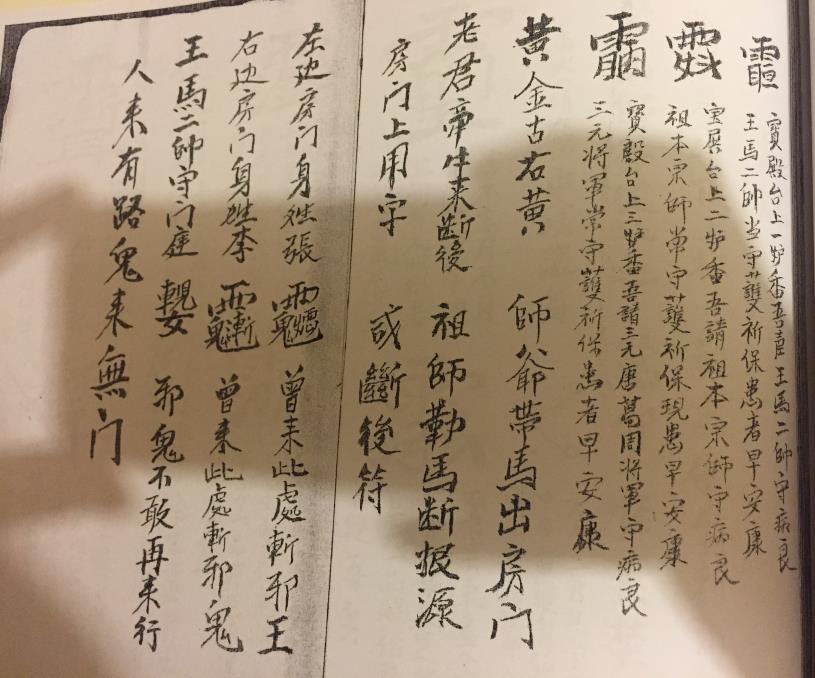 寳殿台上一炉香吾請王馬二帥守病良
王馬二帥当守護祈保患者早安康
宝展台上二炉香吾請祖本宗師守病良
祖本宗師常守護祈保現患早安康
寳殿台上三炉香吾請三元唐葛周将軍守病良
三元将軍常守護祈保患者早安康
黄金古右黄 師爺帯馬出房门
老君帝生来断後 祖師勒馬断根源
房门上用字 或斷後符
左边房门身姓張 曾来此處斬邪王
右边房门身姓李 曾来此處斬邪鬼
王馬二帥守门庭 邪鬼不敢再来行
人来有路鬼来無门